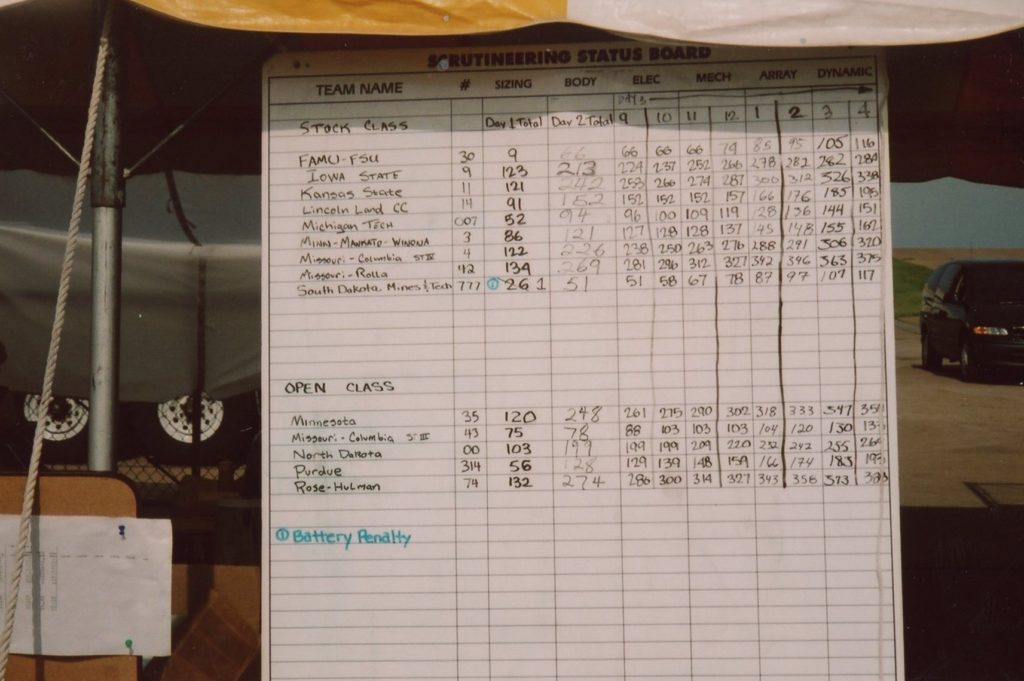 SCRUTINEERING STATUS BOARD
TEAM NAME # SIZING BODY ELEC MECH ARRAY DYNAMIC
DAY 3
STOCK CLASS Day 1 Total Day 2 Total 9 10 11 12 1 2 3 4
FAMU-FSU 30 9 66 66 66 66 79 85 95 105 116
IOWA STATE 9 123 213 224 237 252 266 278 282 282 284
Kansas State 11 121 242 253 266 274 287 300 312 326 338
Lincoln Land CC 14 91 152 152 152 152 157 166 176 185 195
Michigan TECH 007 52 94 96 100 109 119 128 136 144 151
MINN-MANKATO-WINONA 3 86 121 127 128 128 137 145 148 155 162
Missouri-Columbia ST IV 4 122 226 238 250 263 276 288 291 306 320
Missouri-Rolla 42 134 269 281 296 312 327 342 346 363 375
South Dakota Mines & Tech 777 ① 26 1 51 51 58 67 78 87 97 107 117
OPEN CLASS
Minnesota 35 120 248 261 275 290 302 318 333 347
Missouri-Columbia ST III 43 75 78 88 103 103 103 104 120 130
North Dakota 00 103 199 199 199 209 220 232 242 255
Purdue 314 56 128 129 139 148 159 166 174 183
Rose-Hulman 74 132 274 286 300 314 327 343 358 373
① Battery Penalty